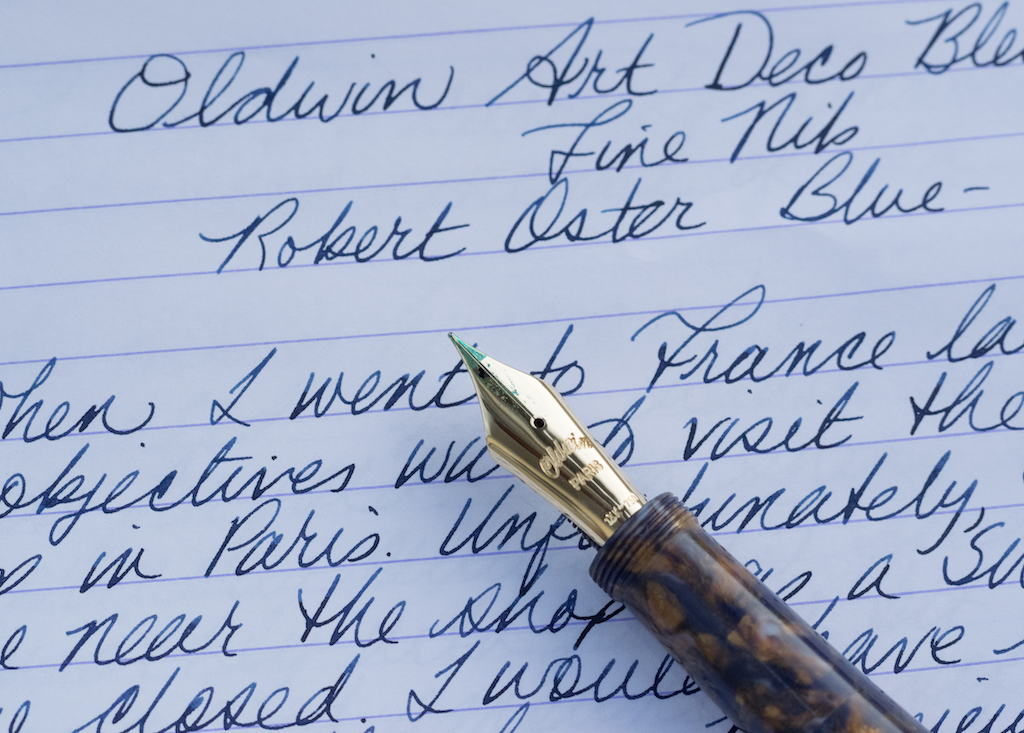 Oldwin Art Deco
Fine Nib
Robert Oster Blue-
When I went to France
objectives was to visit the
in Paris. Unfortunately,
near the shop was a
closed. I would have
Oldwin
PARIS